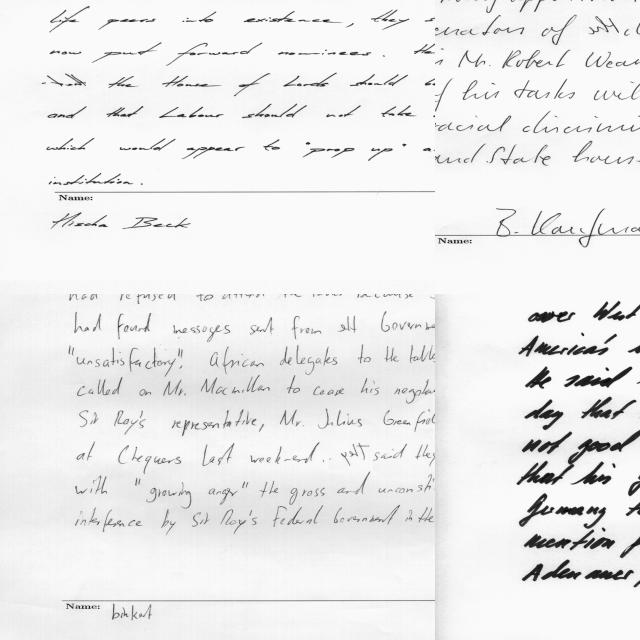 life peers into existence, they
now put forward nominees.
the House of Lords should
and that Labour should not take
which would appear to "prop up" a
institution.
Name:
Mischa Beck
of
Mr. Robert
of his tasks
racial
and State
Name:
B.
had refused to
had found messages sent from
"unsatisfactory". African delegates to the talks
called on Mr. Macmillan to cease his
Sir Roy's representative, Mr. Julius Greenfield
at Chequers last week-end. said they
with "growing anger" the gross and
interference by Sir Roy's Federal Government in the
Name:
over West
America's
He said
day that
not good
that his
Germany
mention
Adenauer,